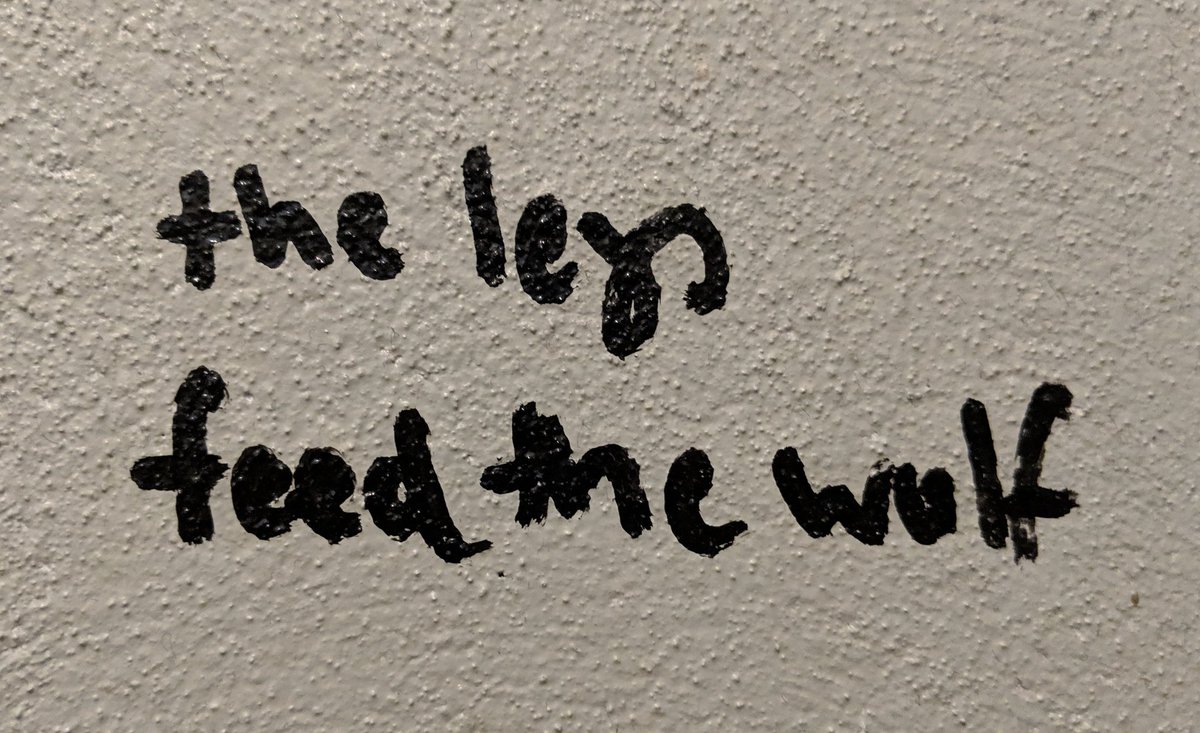 the legs
feed the wolf